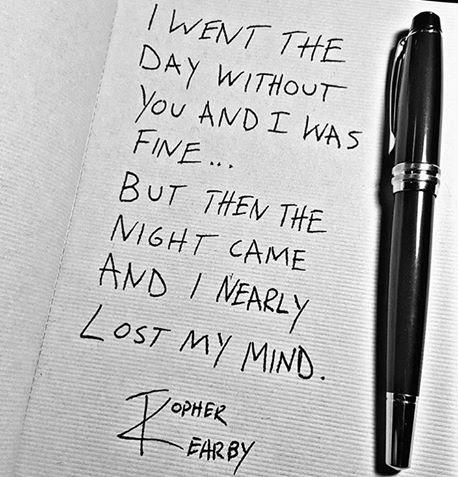 I WENT THE
DAY WITHOUT
YOU AND I WAS
FINE...
BUT THEN THE
NIGHT CAME
AND I NEARLY
LOST MY MIND.
KOPHER
KEARBY